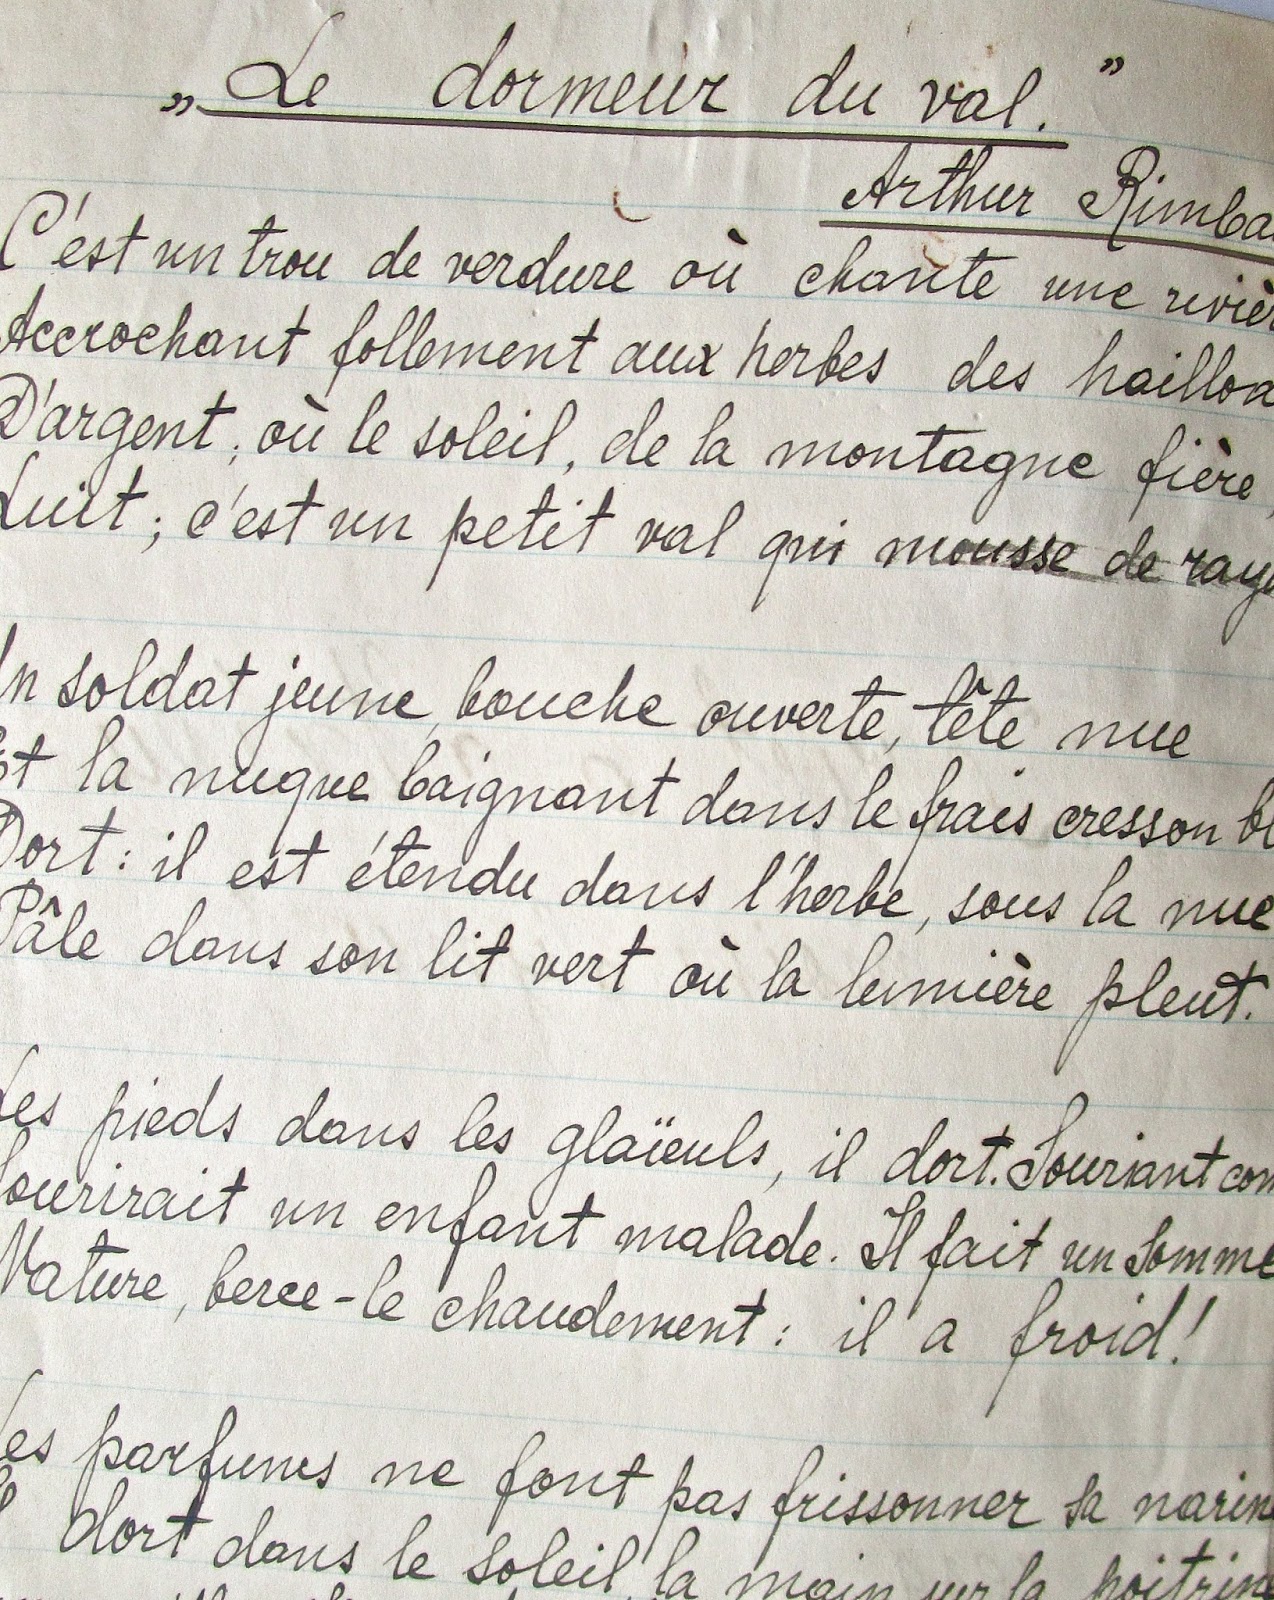 „Le dormeur du val.”
Arthur Rimba
C'est un trou de verdure où chante une rivièr
Accrochant follement aux herbes des haillon
D'argent; où le soleil, de la montagne fière,
Luit; c'est un petit val qui mousse de rayo
Un soldat jeune, bouche ouverte, tête nue
Et la nuque baignant dans le frais cresson bl
Dort: il est étendu dans l'herbe, sous la nue
Pâle dans son lit vert où la lumière pleut.
Les pieds dans les glaïeuls, il dort. Souriant com
Sourirait un enfant malade. Il fait un somme
Nature, berce-le chaudement: il a froid!
Les parfums ne font pas frissonner sa narine
Il dort dans le soleil, la main sur la poitrine